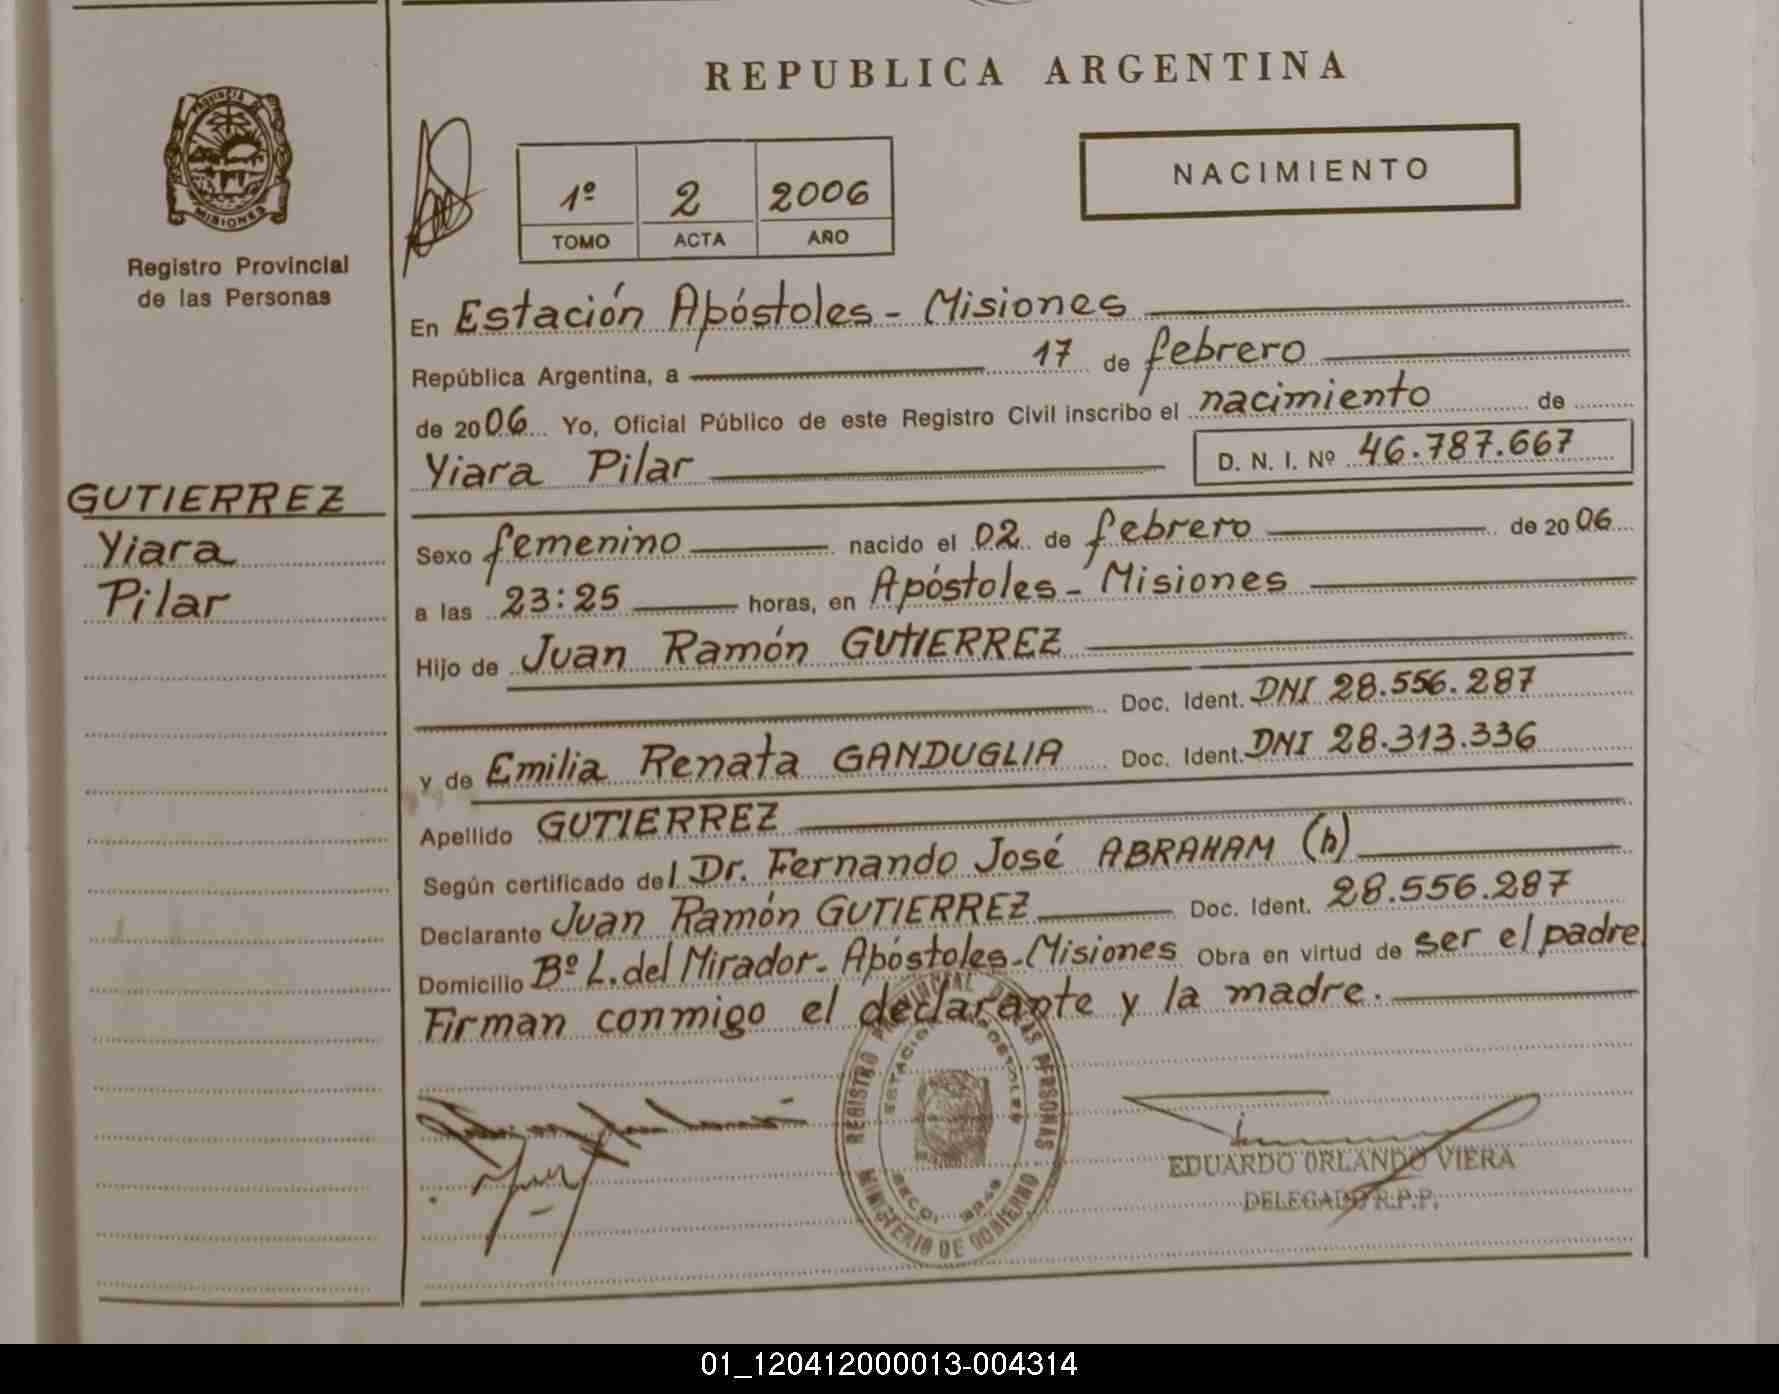 REPUBLICA ARGENTINA
PROVINCIA DE
MISIONES
Registro Provincial
de las Personas
1º 2 2006
TOMO ACTA AÑO
NACIMIENTO
En Estación Apóstoles - Misiones
República Argentina, a 17 de febrero
de 2006 Yo, Oficial Público de este Registro Civil inscribo el nacimiento de
Yiara Pilar D. N. I. Nº 46.787.667
GUTIERREZ
Yiara
Pilar
Sexo femenino nacido el 02 de febrero de 2006
a las 23:25 horas, en Apóstoles - Misiones
Hijo de Juan Ramón GUTIERREZ
Doc. Ident. DNI 28.556.287
y de Emilia Renata GANDUGLIA Doc. Ident. DNI 28.313.336
Apellido GUTIERREZ
Según certificado del Dr. Fernando José ABRAHAM (h)
Declarante Juan Ramón GUTIERREZ Doc. Ident. 28.556.287
Domicilio Bº L. del Mirador - Apóstoles - Misiones Obra en virtud de ser el padre
Firman conmigo el declarante y la madre.
REGISTRO PROVINCIAL DE LAS PERSONAS
MINISTERIO DE GOBIERNO
ESTACION APOSTOLES
EDUARDO ORLANDO VIERA
DELEGADO R.P.P.
01_120412000013-004314